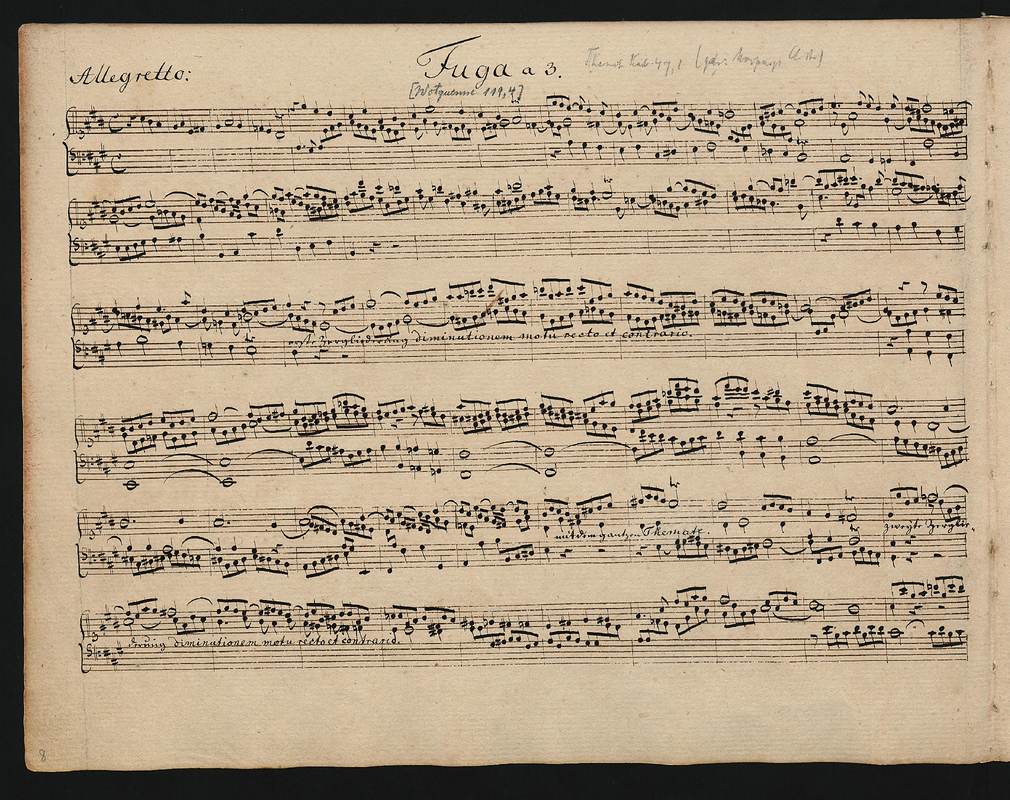 Allegretto: Fuga a 3.
[Wotquenne 119,4]
erste Zergliederung diminutionem motu recto et contrario.
mit dem gantzen Themate.
zweyte Zerglie-
derung diminutionem motu recto et contrario.
8